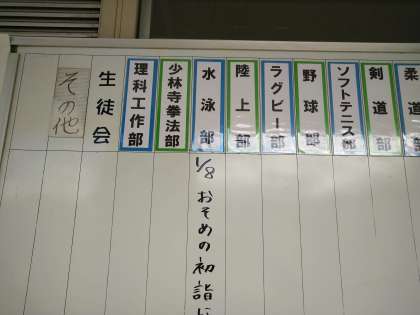 柔道
剣道部
ソフトテニス部
野球部
ラグビー部
陸上部
水泳部
1/8 おそめの初詣に
少林寺拳法部
理科工作部
生徒会
その他